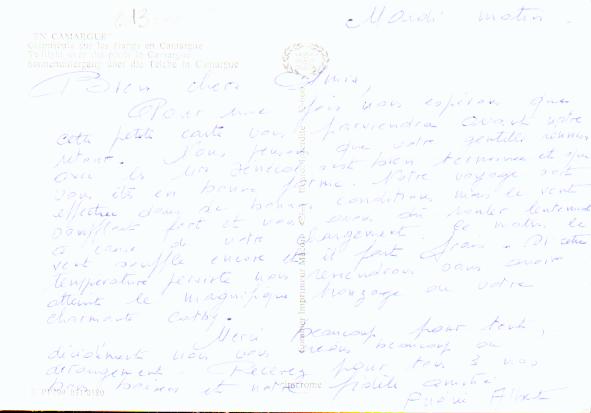 Mardi matin.
EN CAMARGUE
Crépuscule sur les étangs en Camargue
Twilight over the ponds in Camargue
Sonnenuntergang über die Teiche in Camargue
Bien chers Amis
Pour une fois nous espérons que
cette petite carte vous parviendra avant notre
retour. Nous pensons que votre gentille réunion
avec les s'est bien terminée et que
vous êtes en bonne forme. Notre voyage s'est
effectué dans de bonnes conditions mais le vent
soufflant fort et nous avons dû rouler lentement
à cause de notre chargement. Ce matin le
vent souffle encore et il fait frais. Si cette
température persiste nous reviendrons sans avoir
atteint le magnifique bronzage de votre
charmante Cathy.
Merci beaucoup pour tout,
décidément nous vous beaucoup de
dérangement. Recevez pour tous 3 nos
bons baisers et notre fidèle amitié